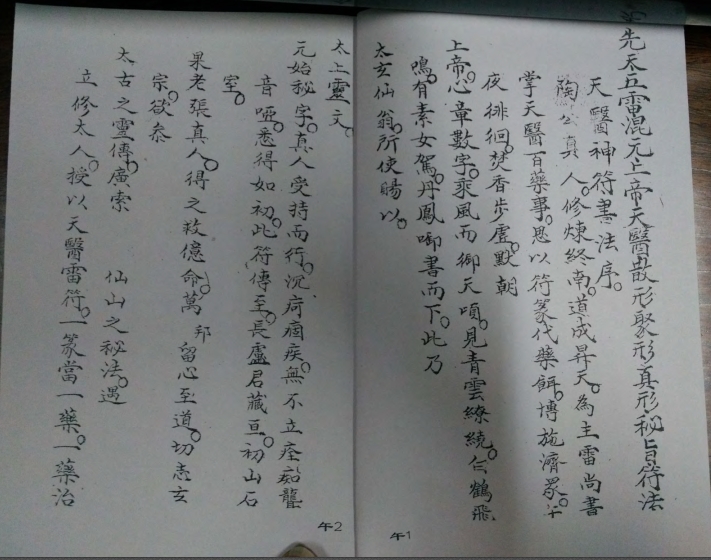 先天五雷混元上帝天醫散形聚形真形秘旨符法
天醫神符書法序。
陶公真人。修煉終南。道成昇天。為主雷尚書
掌天醫百藥事。思以符篆代藥餌。博施濟眾。
夜徘徊。焚香步虛。默朝
上帝。心章數字。乘風而御天頃。見青雲繚繞。鶴飛
鳴。有素女駕。丹鳳啣書而下。此乃
太玄仙翁。所使賜以。
午1
太上靈文。
元始秘字。真人受持而行。沉疴痼疾。無不立痊。聾
音啞。悉得如初。此符傳至。長盧君藏。初山石
室。
果老張真人。得之救億命。萬邦留心至道。切志玄
宗。欲泰
太古之靈傳。廣索仙山之秘法。遇
立修太人。授以天醫雷符。一篆當一藥。一藥治
午2